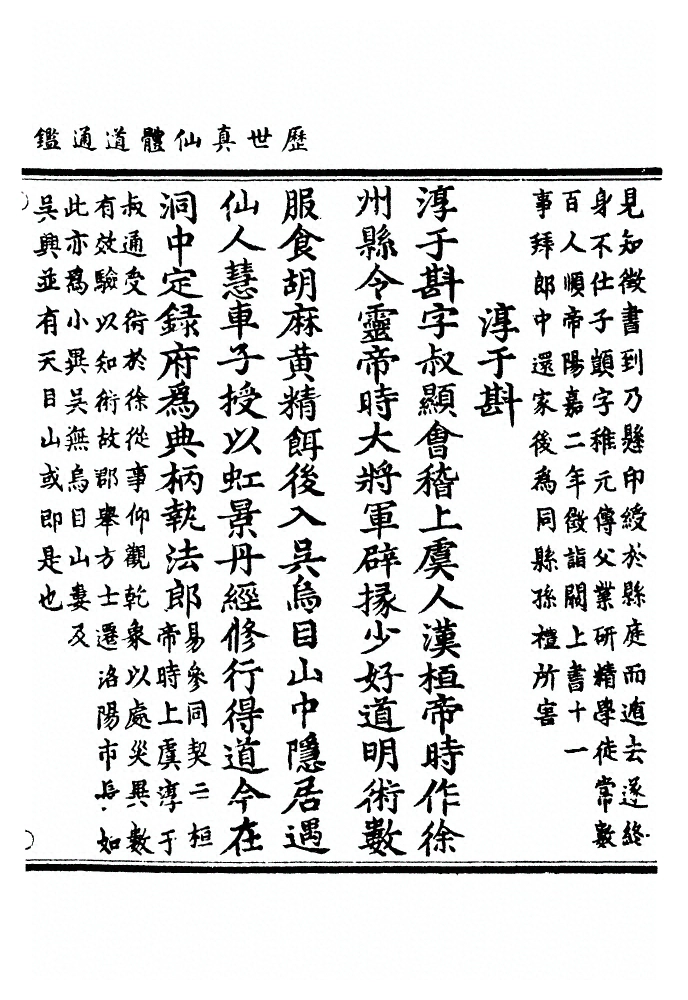 歷世真仙體道通鑑
見知徵書到乃懸印綬於縣庭而遁去遂終
身不仕子顗字稚元傳父業研精學徒常數
百人順帝陽嘉二年徵詣闕上書十一
事拜郎中還家後為同縣孫禮所害
淳于斟
淳于斟字叔顯會稽上虞人漢桓帝時作徐
州縣令靈帝時大將軍辟掾少好道明術數
服食胡麻黄精餌後入吳烏目山中隱居遇
仙人慧車子授以虹景丹經修行得道今在
洞中定録府爲典柄執法郎易參同契云桓
帝時上虞淳于
叔通受術於徐從事仰觀乾象以處災異數
有效驗以知術故郡舉方士遷洛陽市長如
此亦爲小異吳無烏目山婁及
吳興並有天目山或即是也